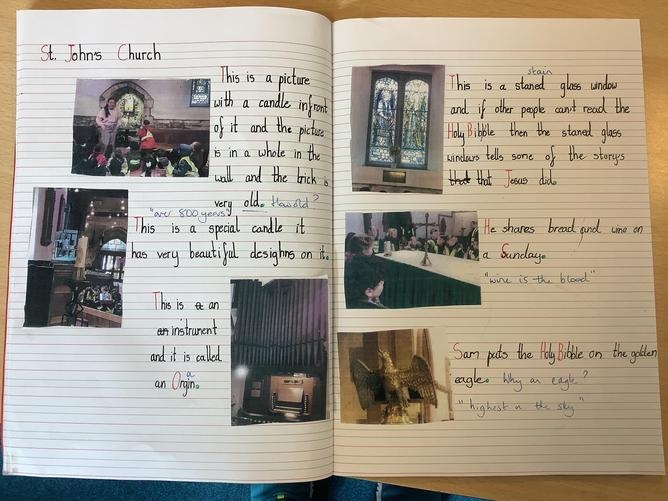 St. John's Church
This is a picture
with a candle infront
of it and the picture
is in a whole in the
wall and the brick is
very old. How old?
"over 800 years"
This is a special candle it
has very beautiful desighns on it.
This is a an
an instrument
and it is called
a
an Orgin.
stain
This is a staned glass window
and if other people can't read the
Holy Bibble then the staned glass
windows tells some of the storys
that that Jesus did.
He shares bread and wine on
a Sunday.
"wine is the blood"
Sam puts the Holy Bibble on the golden
eagle. Why an eagle?
"highest in the sky"